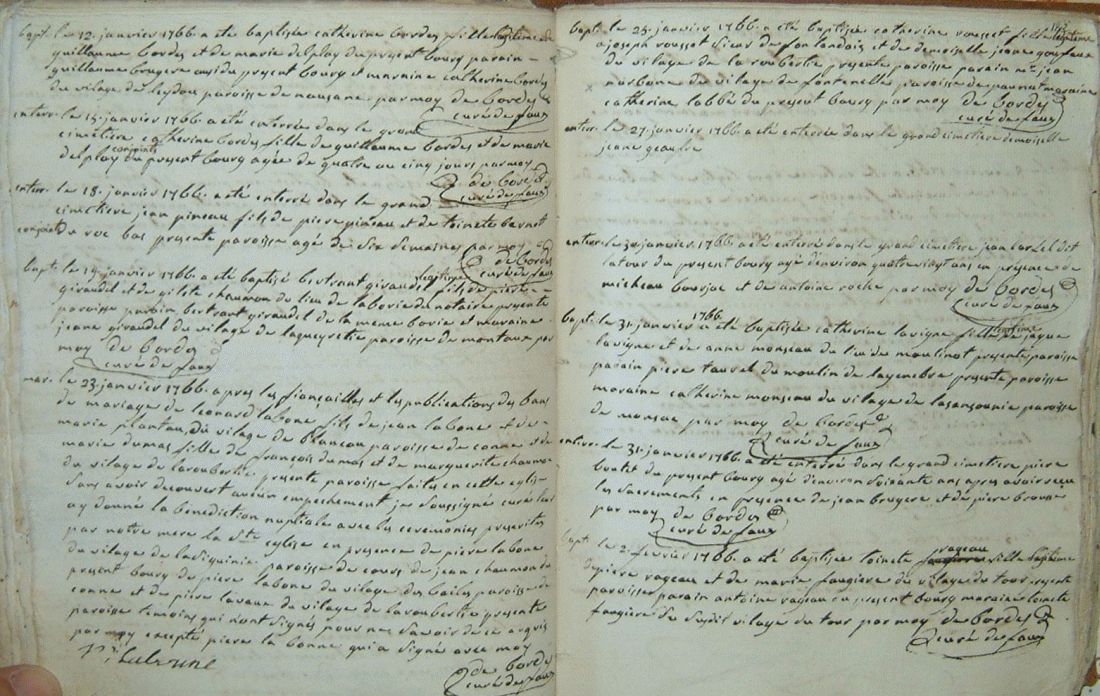 bapt. le 12. janvier 1766. a été baptisée catherine bordes fille legitime de
guillaume bordes et de marie delploy du present bourg parain
guillaume bruyere aussi du present bourg et maraine catherine bordes
du vilage de paroisse de nausane par moy de bordes
curé de faux
enterr. le 15. janvier 1766. a été enterrée dans le grand
cimetiere catherine bordes fille de guillaume bordes et de marie
delploy conjoints du present bourg agée de quatre au cinq jours par moy
de bordes
curé de faux
enterr. le 18. janvier 1766. a été enterré dans le grand
cimetiere jean pineau fils de piere pineau et de toinete bernot
conjoints du roc bas presente paroisse agé de six semaines par moy
de bordes
curé de faux
bapt. le 19. janvier 1766. a été baptisé bertrant giraudel fils legitime de piere
giraudel et de gilete chaumon du lieu de la borie du notaire presente
paroisse parain bertrant giraudel de la meme borie et maraine
jeane giraudel du vilage de laqueyrelie paroisse de montaux par
moy de bordes
curé de faux
mar. le 23. janvier 1766. apres les fiançailles et les publications des bans
de mariage de leonard labone fils de jean labone et de
marie plantau, du vilage de blancou paroisse de conne et de
marie dumas fille de françois dumas et de marguerite chaumon
du vilage de laroubertie presente paroisse faites en cette eglise
sans avoir decouvert aucun empechement je soussigné curé leur
ay donné la benediction nuptiale avec les ceremonies prescrites
par notre mere la ste eglise en presence de piere labone
du vilage de paroisse de cours de jean chaumon du
present bourg de piere labone du vilage des bailes paroisse de
conne et de piere lavaux du vilage de laroubertie presente
paroisse temoins qui n'ont signés pour ne savoir de ce requis
par moy excepté piere la bonne qui a signé avec moy
de bordes
curé de faux
bapt. le 25. janvier 1766. a été baptisée catherine rousset fille legitime
a joseph rousset sieur de fonlandais et de demoiselle jeane
du vilage de la roubertie presente paroisse parain mr. jean
narbone du vilage de fontenelle paroisse de paunat maraine
catherine labbé du present bourg par moy de bordes
curé de faux
enterr. le 27. janvier 1766. a été enterrée dans le grand cimetiere demoiselle
jeane
enterr. le 30. janvier 1766. a été enterré dans le grand cimetiere jean dit
latour du present bourg agé d'environ quatre vingt ans en présence de
micheau bourjac et de antoine roche par moy de bordes
curé de faux
bapt. le 31. janvier 1766 a été baptisée catherine lavigne fille legitime de jaque
lavigne et de anne monseau du lieu de moulinot presente paroisse
parain piere taurel du moulin de presente paroisse
maraine catherine monseau du vilage de paroisse
de monsac par moy de bordes
curé de faux
enterr. le 31. janvier 1766. a été enterré dans le grand cimetiere piere
boutet du present bourg agé d'environ soixante ans apres avoir reçu
les sacrements en presence de jean bruyere et de piere
par moy de bordes
curé de faux
bapt. le 2. fevrier 1766. a été baptisée toinete rageau fille legitime
de piere rageau et de marie faugiere du vilage du tour presente
paroisse parain antoine rageau du present bourg maraine toinete
faugiere du susdit vilage du tour par moy de bordes
curé de faux